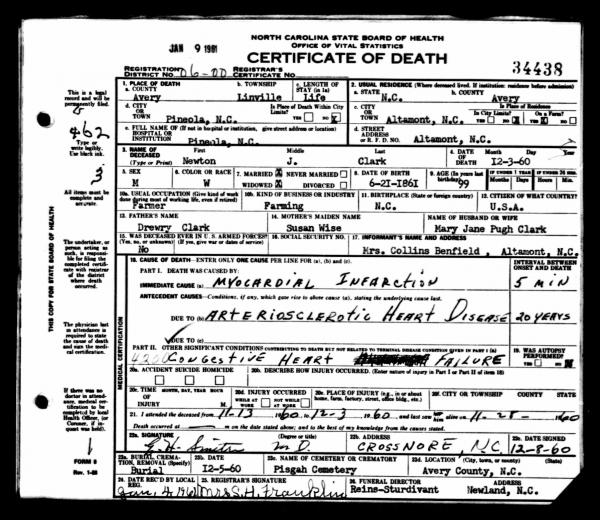 NORTH CAROLINA STATE BOARD OF HEALTH
OFFICE OF VITAL STATISTICS
JAN 9 1961
CERTIFICATE OF DEATH
34438
REGISTRATION DISTRICT No. 06-00 REGISTRAR'S CERTIFICATE No.
1. PLACE OF DEATH 2. USUAL RESIDENCE (Where deceased lived. If institution: residence before admission)
a. COUNTY b. TOWNSHIP c. LENGTH OF STAY (in 1a) a. STATE b. COUNTY
Avery Linville Life N.C. Avery
d. CITY OR TOWN Pineola, N.C. Is Place of Death Within City Limits? YES NO X c. CITY OR TOWN Altamont, N.C. Is Place of Residence In City Limits? On a Farm?
e. FULL NAME OF (If not in hospital or institution, give street address or location) HOSPITAL OR INSTITUTION Pineola, N.C. d. STREET ADDRESS or R. F. D. NO. Altamont, N.C.
3. NAME OF DECEASED (Type or Print) First Middle Last 4. DATE OF DEATH Month Day Year
Newton J. Clark 12-3-60
5. SEX 6. COLOR OR RACE 7. MARRIED NEVER MARRIED 8. DATE OF BIRTH 9. AGE (In years last birthday) IF UNDER 1 YEAR IF UNDER 24 HRS.
M W WIDOWED X DIVORCED 6-21-1861 99 Months Days Hours Min.
10a. USUAL OCCUPATION (Give kind of work done during most of working life, even if retired) 10b. KIND OF BUSINESS OR INDUSTRY 11. BIRTHPLACE (State or foreign country) 12. CITIZEN OF WHAT COUNTRY?
Farmer Farming N.C. U.S.A.
13. FATHER'S NAME 14. MOTHER'S MAIDEN NAME NAME OF HUSBAND OR WIFE
Drewry Clark Susan Wise Mary Jane Pugh Clark
15. WAS DECEASED EVER IN U. S. ARMED FORCES? 16. SOCIAL SECURITY NO. 17. INFORMANT'S NAME AND ADDRESS
(Yes, no, or unknown) (If yes, give war or dates of service)
No Mrs. Collins Benfield, Altamont, N.C.
18. CAUSE OF DEATH—ENTER ONLY ONE CAUSE PER LINE FOR (a), (b), and (c). INTERVAL BETWEEN ONSET AND DEATH
PART I. DEATH WAS CAUSED BY:
IMMEDIATE CAUSE (a) MYOCARDIAL INFARCTION 5 MIN
ANTECEDENT CAUSES—Conditions, if any, which gave rise to above cause (a), stating the underlying cause last.
DUE TO (b) ARTERIOSCLEROTIC HEART DISEASE 20 YEARS
DUE TO (c)
PART II. OTHER SIGNIFICANT CONDITIONS CONTRIBUTING TO DEATH BUT NOT RELATED TO TERMINAL DISEASE CONDITION GIVEN IN PART I (a) 19. WAS AUTOPSY PERFORMED?
CONGESTIVE HEART FAILURE YES NO
20a. ACCIDENT SUICIDE HOMICIDE 20b. DESCRIBE HOW INJURY OCCURRED. (Enter nature of injury in Part I or Part II of item 18)
20c. TIME OF INJURY MONTH, DAY, YEAR HOUR M. 20d. INJURY OCCURRED WHILE AT WORK NOT WHILE AT WORK 20e. PLACE OF INJURY (e.g., in or about home, farm, factory, street, office bldg., etc.) 20f. CITY OR TOWNSHIP COUNTY STATE
21. I attended the deceased from 11-13 1960 to 12-3 1960 and last saw alive on 11-28- 1960
Death occurred at m on the date stated above; and to the best of my knowledge from the causes stated.
22a. SIGNATURE (Degree or title) 22b. ADDRESS 22c. DATE SIGNED
E. H. Smith M D. CROSSNORE, N.C. 12-8-60
23a. BURIAL, CREMATION, REMOVAL (Specify) 23b. DATE 23c. NAME OF CEMETERY OR CREMATORY 23d. LOCATION (City, town, or county) (State)
Burial 12-5-60 Pisgah Cemetery Avery County, N.C.
24. DATE REC'D BY LOCAL REG. 25. REGISTRAR'S SIGNATURE 26. FUNERAL DIRECTOR ADDRESS
Jan. 4. 1961 Mrs S. H. Franklin Reins-Sturdivant Newland, N.C.
This is a legal record and will be permanently filed.
462
Type or write legibly. Use black ink.
3
All items must be complete and accurate.
The undertaker, or person acting as such, is responsible for filing the completed certificate with registrar of the district where death occurred.
The physician last in attendance is required to state the cause of death and sign the medical certification.
If there was no doctor in attendance, medical certification to be completed by local Health Officer, (or Coroner, if inquest was held).
1
FORM 8
THIS COPY FOR STATE BOARD OF HEALTH
MEDICAL CERTIFICATION